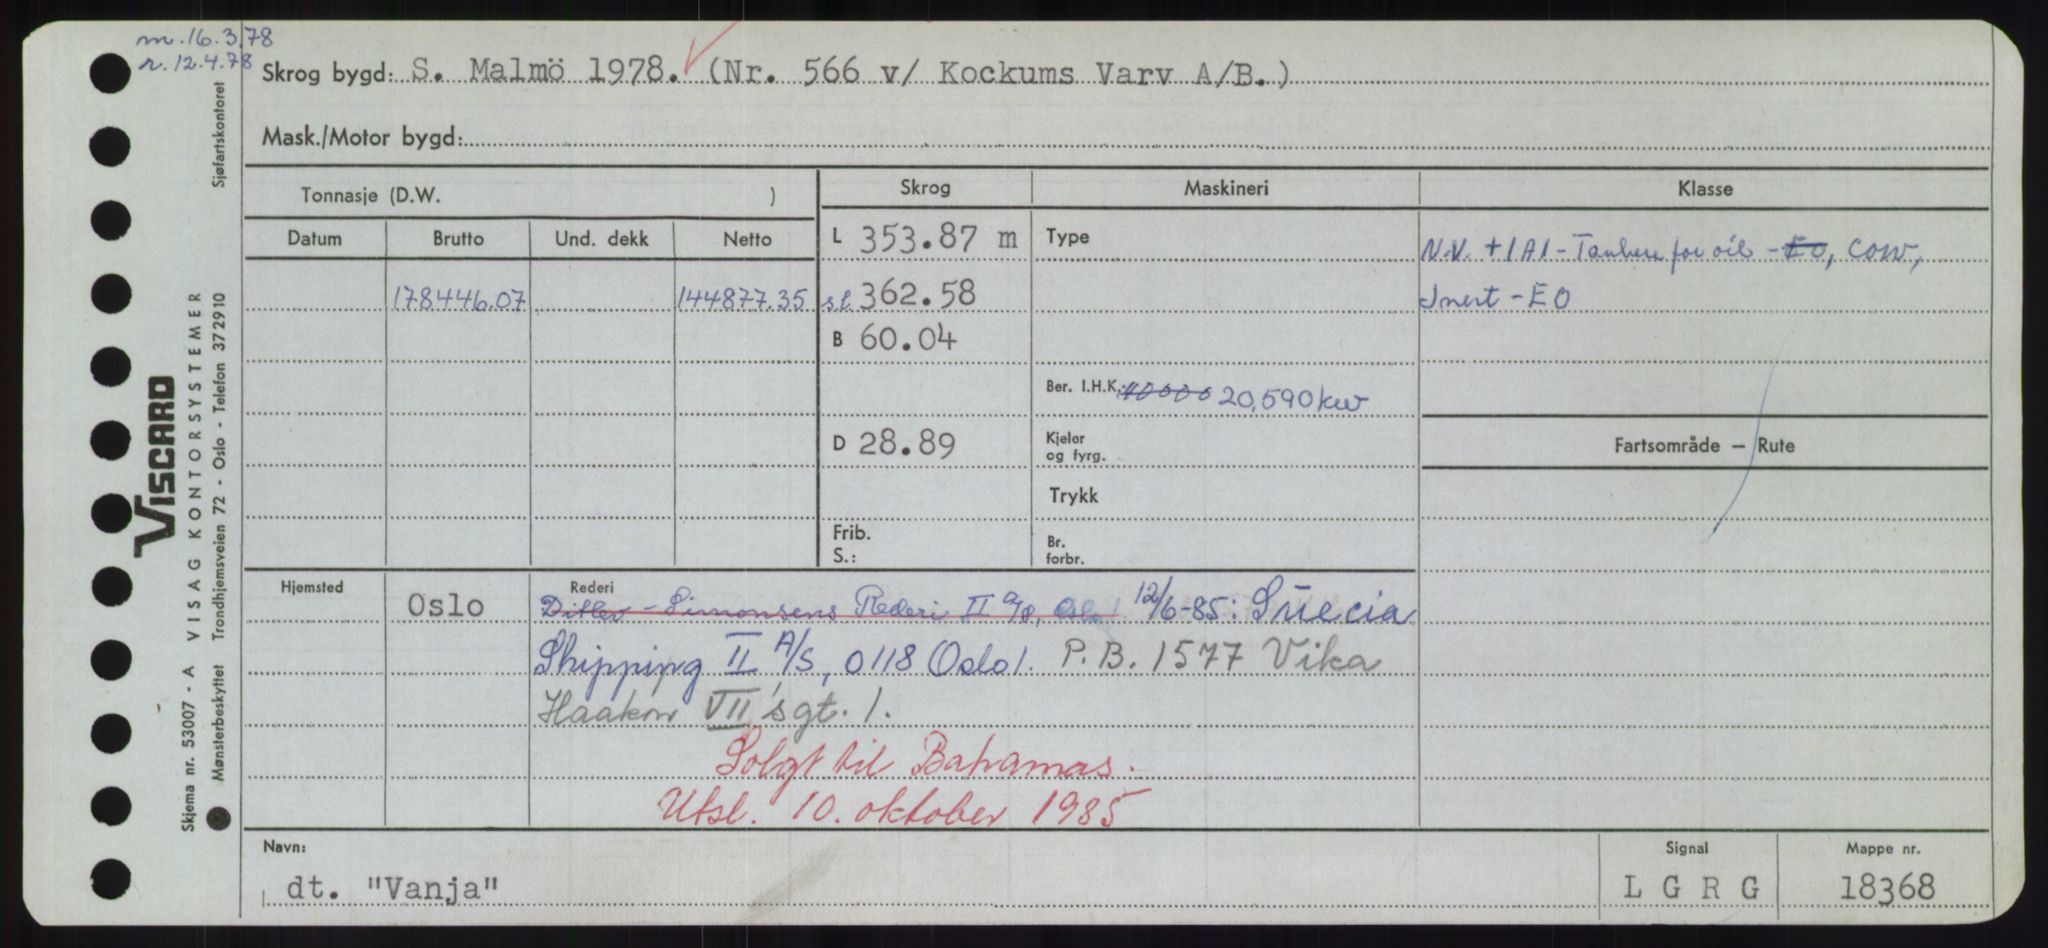 m. 16.3.78
r. 12.4.78
Skrog bygd: S. Malmö 1978. (Nr. 566 v/ Kockums Varv A/B.)
Mask./Motor bygd:
Tonnasje (D.W. )
Skrog Maskineri Klasse
Datum Brutto Und. dekk Netto
178446.07 144877.35
L 353.87 m
s.l. 362.58
B 60.04
D 28.89
Frib.
S.:
Type
Ber. I.H.K. 40000 20,590 kw
Kjeler
og fyrg.
Trykk
Br.
forbr.
N.V. +1A1 - Tanker for oil - EO, COW,
Inert - EO
Fartsområde — Rute
Hjemsted Oslo
Rederi
Ditlev-Simonsens Rederi II A/S, Oslo 1. 12/6-85: Suecia
Shipping II A/S, 0118 Oslo 1. P.B. 1577 Vika
Haakon VII's gt. 1.
Solgt til Bahamas.
Utsl. 10. oktober 1985
Navn: Signal Mappe nr.
dt. "Vanja" L G R G 18368
VISCARD
Skjema nr. 53007 - A VISAG KONTORSYSTEMER
Mønsterbeskyttet Trondhjemsveien 72 - Oslo - Telefon 372910
Sjøfartskontoret